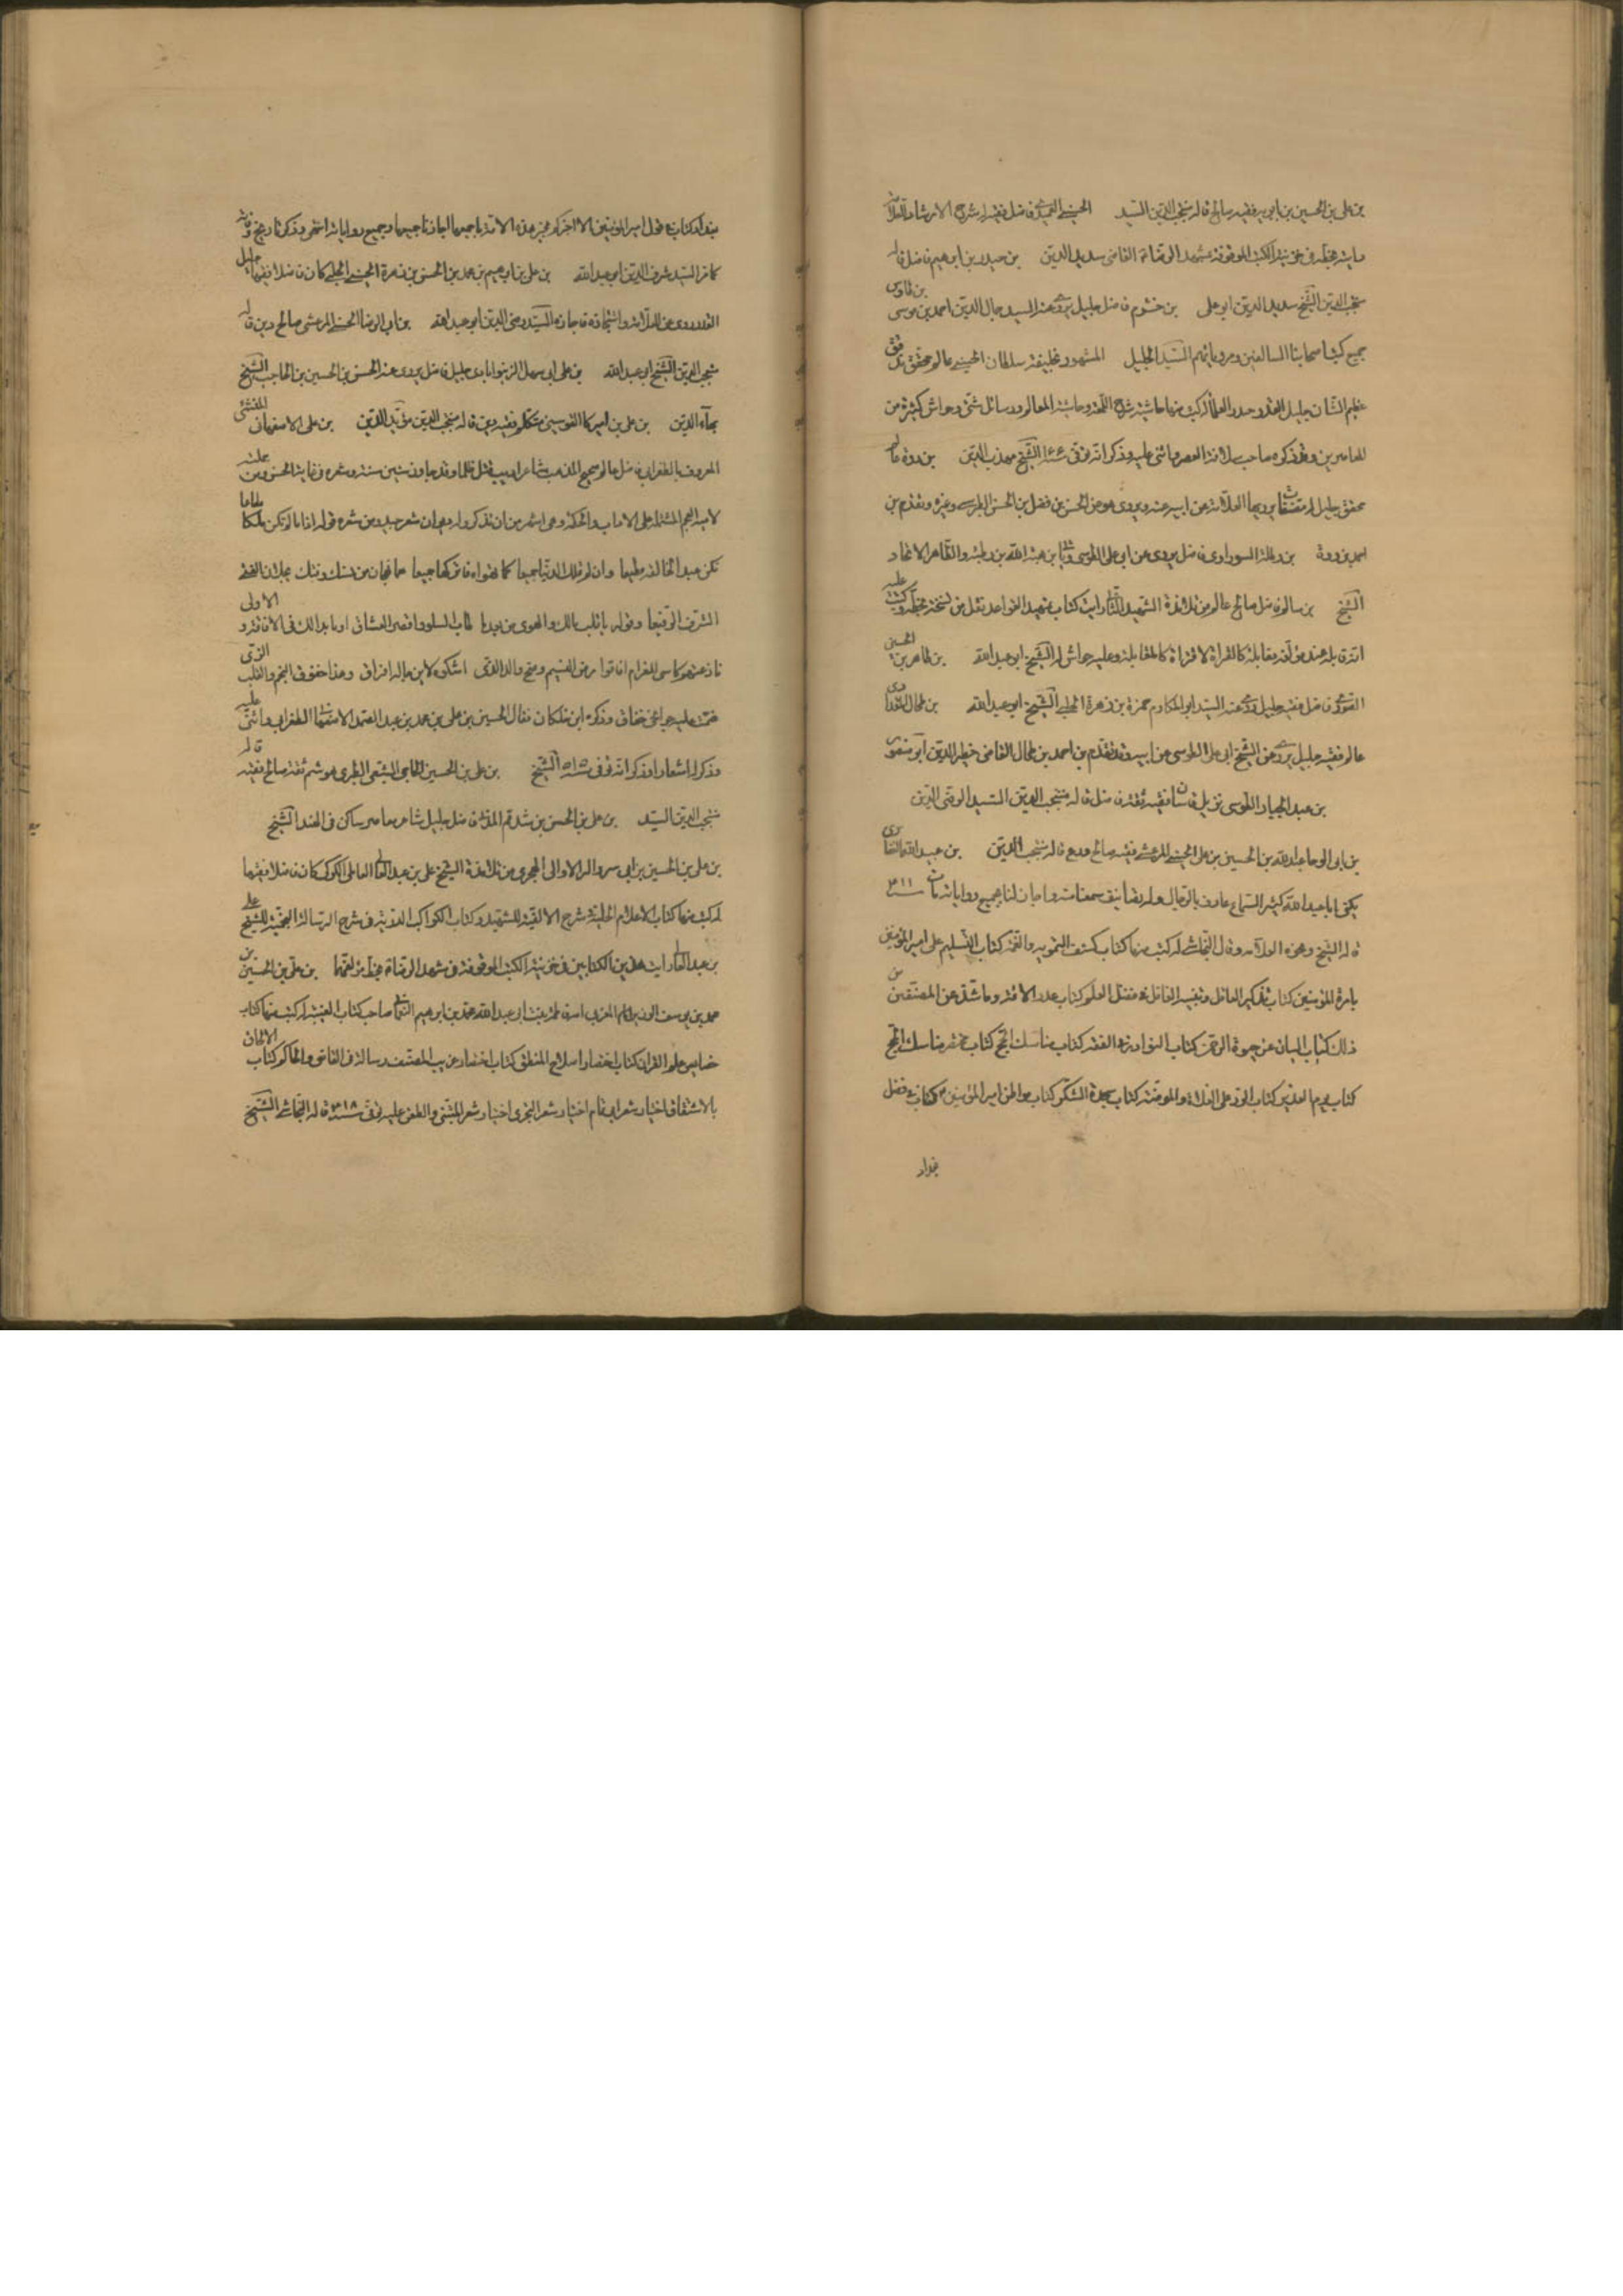 بن علي بن الحسين بن بابويه فقيه صالح قاله منتجب الدين السيد الحسيني العميدي فاضل فقيه له شرح الارشاد للعلامة
رايته بخطه في خزينة الكتب الموقوفة بمشهد الرضا ع القاضي سديد الدين بن حيدر بن ابرهيم فاضل قاله
منتجب الدين الشيخ سديد الدين ابو علي بن خشرم فاضل جليل يروي عنه السيد جمال الدين احمد بن موسى بن طاوس
جميع كتب اصحابنا السالفين ومروياتهم السيد الجليل المشهور بخليفة سلطان الحسيني عالم محقق مدقق
عظيم الشان جليل القدر صدر العلماء له كتب منها حاشية شرح اللمعة وحاشية المعالم ورسائل شتى وحواش كثيرة من
المعاصرين وقد ذكره صاحب سلافة العصر واثنى عليه وذكر انه توفي الشيخ مهذب الدين بن ردة عالم
محقق جليل له مصنفات يرويها العلامة عن ابيه عنه ويروي هو عن الحسن بن فضل بن الحسن الطبرسي وغيره وتقدم بن
احمد بن ردة بن رطبة السوراوي فاضل يروي عن ابي علي الطوسي وياتي ابن هبة الله بن رطبة والظاهر الاتحاد
الشيخ بن سالم فاضل صالح عالم من تلامذة الشهيد الثاني رايت كتاب تمهيد القواعد نقل من نسخة بخطه وكتب عليه
انه قابله عند مؤلفه مقابلة كالقراءة لا قراءة كالمقابلة وعليه حواش له الشيخ ابو عبد الله بن طاهر بن الحسين
الصوري فاضل فقيه جليل روى عنه السيد ابو المكارم حمزة بن زهرة الحلبي الشيخ ابو عبد الله بن طحال المقدادي
عالم فقيه جليل يروي عن الشيخ ابي علي الطوسي عن ابيه وقد تقدم بن احمد بن طحال القاضي خطير الدين ابو منصور
بن عبد الجبار الطوسي نزيل قاسان فقيه ثقة فاضل قاله منتجب الدين السيد الرضي الدين
بن ابي الرضا عبد الله بن الحسين بن علي الحسيني المرعشي فقيه صالح ورع قاله منتجب الدين بن عبيد الله الغضائري
يكنى ابا عبد الله كثير السماع عارف بالرجال وله تصانيف سمعنا منه واجاز لنا جميع رواياته مات
قاله الشيخ ونحوه العلامة وقال النجاشي له كتب منها كتاب كشف التمويه والغمة كتاب التسليم على امير المؤمنين
بامرة المؤمنين كتاب تذكير العاقل وتنبيه الغافل في فضل العلم كتاب عدد الائمة وما شذ عن المصنفين من
ذلك كتاب البيان عن حبوة الرحمن كتاب النوادر في الفقه كتاب مناسك الحج كتاب مختصر مناسك الحج
كتاب يوم الغدير كتاب الرد على الغلاة والمفوضة كتاب سجدة الشكر كتاب مواطن امير المؤمنين كتاب في فضل
بغداد
بغداد كتاب في قول امير المؤمنين الا اخبركم بخير هذه الامة اجازنا جميعها وجميع رواياته انتهى وذكر تاريخ وفاته
كما مر السيد شرف الدين ابو عبد الله بن علي بن ابرهيم بن محمد بن الحسن بن زهرة الحسيني الحلبي كان فاضلا فقيها جليل
القدر روى عن العلامة واستجازه فاجازه السيد رضي الدين ابو عبد الله بن ابي الرضا الحسيني المرعشي صالح دين قاله
منتجب الدين الشيخ ابو عبد الله بن علي ابي سهل الزينوابادي جليل فاضل يروي عنه الحسن بن الحسين بن الحاجب الشيخ
بهاء الدين بن علي بن اميركا القوسيني متكلم فقيه دين قاله منتجب الدين مؤيد الدين بن علي الاصفهاني المنشئ
المعروف بالطغرائي فاضل عالم صحيح المذهب شاعر اديب قتل ظلما وقد جاوز ستين سنة وشعره في غاية الحسن ومن جملته
لامية العجم المشتملة على الاداب والحكم وهي اشهر من ان تذكر وله ديوان شعر جيد ومن شعره قوله اذا ما لم تكن ملكا مطاعا
فكن عبدا لخالقه مطيعا وان لم تملك الدنيا جميعا كما تهواه فاتركها جميعا هما نهجان من نسك وفتك يحلان الفتى
الشرف الرفيعا وقوله يا قلب مالك والهوى من بعد ما طاب السلو واقصر العشاق اوما بدا لك في الافاقة والاولى
نازعتهم كاس الغرام افاقوا مرض النسيم وصح والداء الذي اشكوه لا يرجى له افراق وهذا خفوق النجم والقلب الذي
ضمت عليه جوانحي خفاق وذكره ابن خلكان فقال الحسين بن علي بن محمد بن عبد الصمد الاصفهاني الطغرائي واثنى عليه
وذكر له اشعارا وذكر انه توفي سنة ٥١٥ الشيخ بن علي بن الحسين الحاجبي الشيعي الطبري هوشم ثقة صالح فقيه قاله
منتجب الدين السيد بن علي بن الحسن بن شدقم المدني فاضل جليل شاعر معاصر ساكن في الهند الشيخ
بن علي بن الحسين بن ابي سروال الاوالي الهجري من تلامذة الشيخ علي بن عبد العالي العاملي الكركي كان فاضلا فقيها
له كتب منها كتاب الاعلام الجلية شرح الالفية للشهيد وكتاب الكواكب الدرية في شرح الرسالة النجمية للشيخ علي
بن عبد العالي رايت هذين الكتابين في خزينة الكتب الموقوفة في مشهد الرضا ع بخط مؤلفهما بن علي بن الحسين بن
محمد بن يوسف الوزير ابو القاسم المغربي امه فاطمة بنت ابي عبد الله محمد بن ابرهيم النعماني صاحب كتاب الغيبة له كتب منها كتاب
خصايص علم القران كتاب اختصار اصلاح المنطق كتاب اختصار غريب المصنف رسالة في القاضي والحاكم كتاب الالحاق
بالاشتقاق اختيار شعر ابي تمام اختيار شعر البحتري اختيار شعر المتنبي والطعن عليه توفي سنة ٤١٨ قاله النجاشي الشيخ